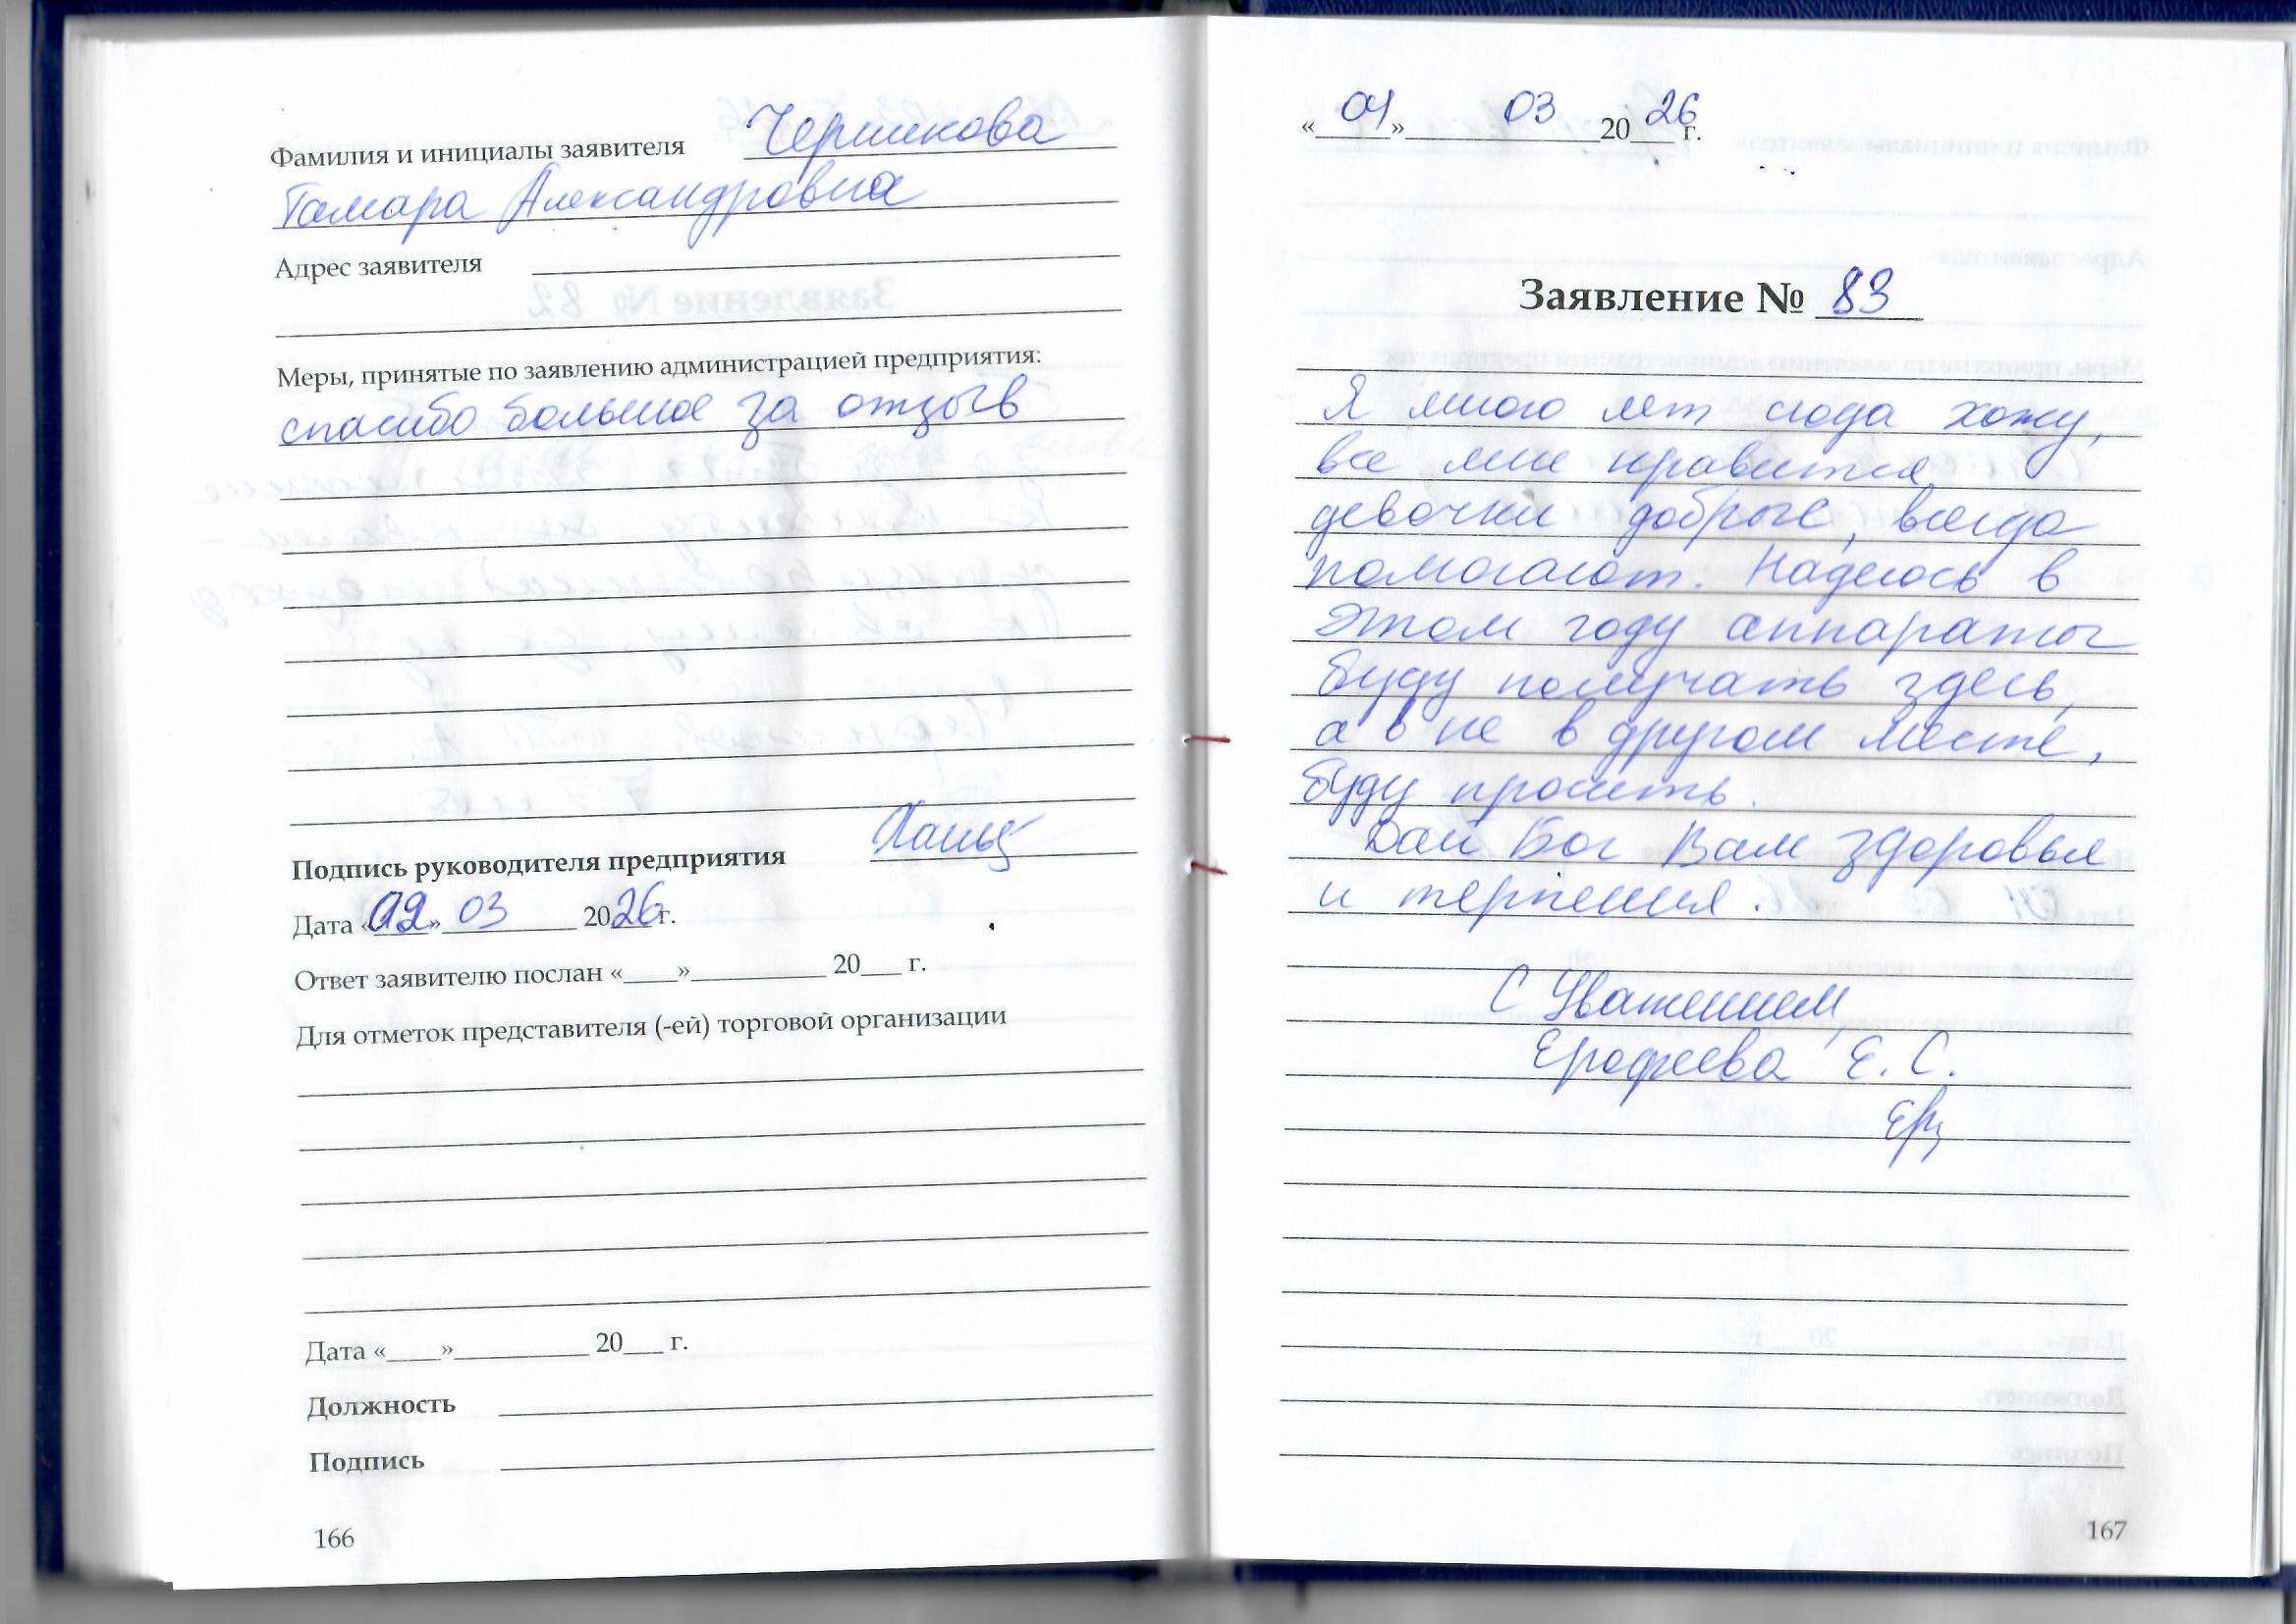 Фамилия и инициалы заявителя Чершикова
Тамара Александровна
Адрес заявителя
Меры, принятые по заявлению администрацией предприятия:
спасибо большое за отзыв
Подпись руководителя предприятия
Дата «02» 03 2026г.
Ответ заявителю послан «____»__________ 20___ г.
Для отметок представителя (-ей) торговой организации
Дата «____»__________ 20___ г.
Должность
Подпись
166
«04» 03 2026г.
Заявление № 83
Я много лет сюда хожу,
все мне нравится,
девочки добрые, всегда
помогают. Надеюсь в
этом году аппараты
буду получать здесь,
а в не в другом месте,
буду просить.
Дай Бог Вам здоровья
и терпения.
С Уважением,
Ерофеева Е. С.
167